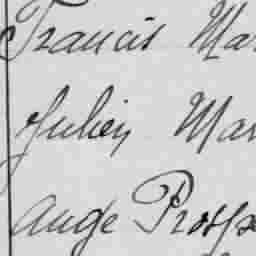 Francis Mar
Julien Mar
Ange Prosp